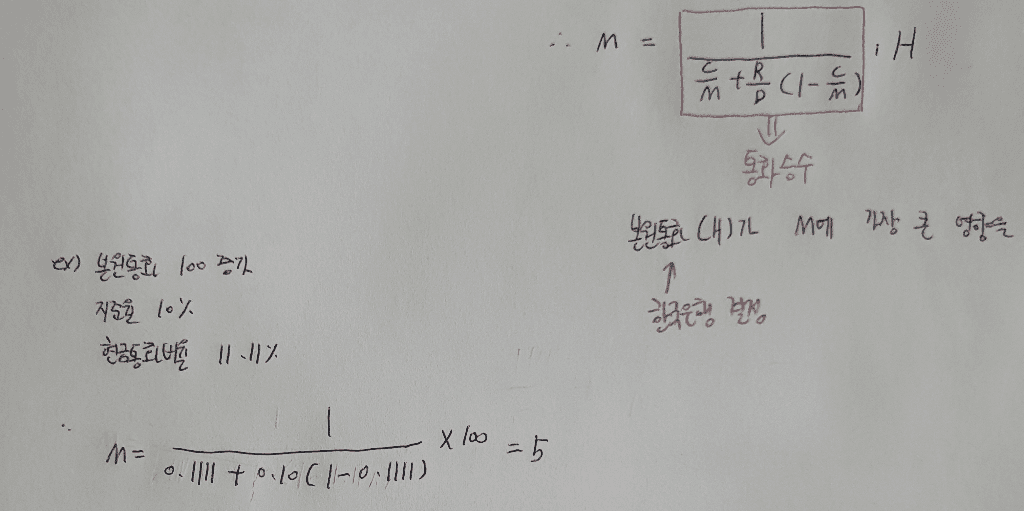 ∴ M = 1 / (C/M + R/D (1 - C/M)) · H
통화승수
본원통화 (H)가 M에 가장 큰 영향을
한국은행 결정
ex) 본원통화 100 증가
지준율 10%
현금통화비율 11.11%
∴ M = 1 / (0.1111 + 0.10 (1-0.1111)) × 100 = 5